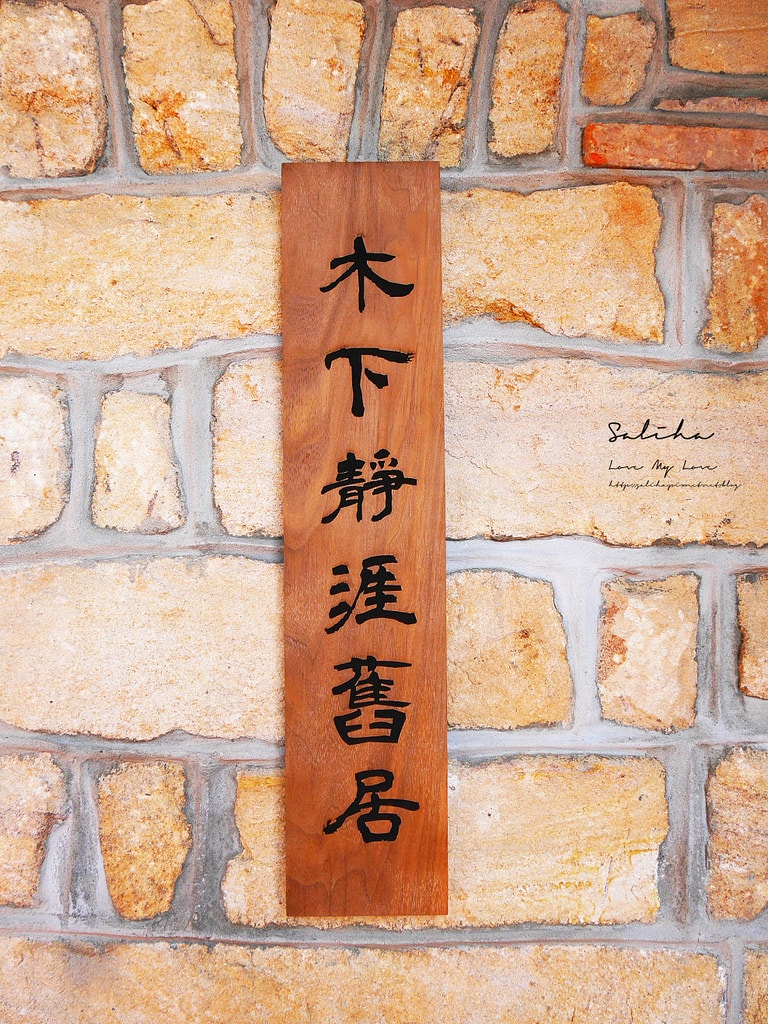 木下靜涯舊居
Saliha
Love My Love